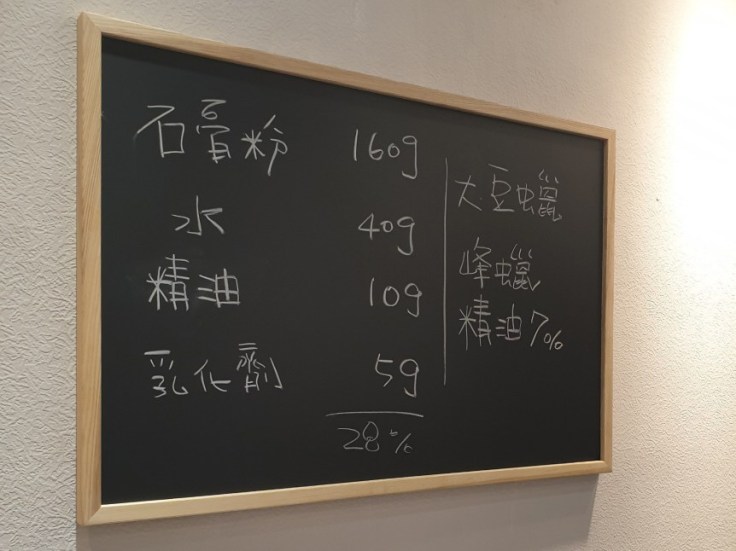 石膏粉 160g
水 40g
精油 10g
乳化劑 5g
28%
大豆蠟
峰蠟
精油7%